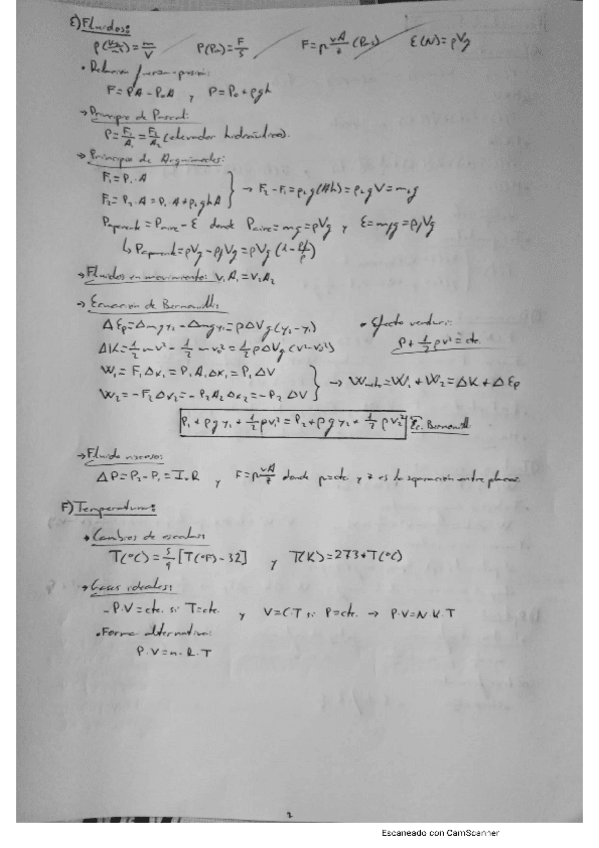 E) Fluidos:
ρ = m/V P(Pa) = F/S F = μ vA/z E(N) = ρVg
• Relación fuerza-presión:
F = PA - P₀A y P = P₀ + ρgh
→ Principio de Pascal:
P = F₁/A₁ = F₂/A₂ (elevador hidráulico).
→ Principio de Arquímedes:
F₁ = P₁·A
F₂ = P₂·A = P₁·A + ρ₂ghA } → F₂ - F₁ = ρ₂g(Ah) = ρ₂gV = m₂g
Paparente = Paire - E donde Paire = mg = ρVg y E = mfg = ρfVg
↳ Paparente = ρVg - ρfVg = ρVg (1 - ρf/ρ)
→ Fluidos en movimiento: v₁A₁ = v₂A₂
→ Ecuación de Bernoulli:
ΔEp = Δmgy₂ - Δmgy₁ = ρΔVg(y₂ - y₁) • Efecto venturi:
ΔK = 1/2 mv² - 1/2 mv₀² = 1/2 ρΔV(v² - v₀²) P + 1/2 ρv² = cte.
W₁ = F₁Δx₁ = P₁A₁Δx₁ = P₁ΔV
W₂ = -F₂Δx₂ = -P₂A₂Δx₂ = -P₂ΔV } → W = W₁ + W₂ = ΔK + ΔEp
P₁ + ρgy₁ + 1/2 ρv₁² = P₂ + ρgy₂ + 1/2 ρv₂² Ec. Bernoulli
→ Fluido viscoso:
ΔP = P₂ - P₁ = Iv R y F = μ vA/z donde μ = cte y z es la separación entre placas.
F) Temperatura:
• Cambios de escalas:
T(°C) = 5/9 [T(°F) - 32] y T(K) = 273 + T(°C)
→ Gases ideales:
- P·V = cte. si T = cte. y V = C·T si P = cte. → P·V = N·K·T
• Forma alternativa:
P·V = n·R·T
2
Escaneado con CamScanner